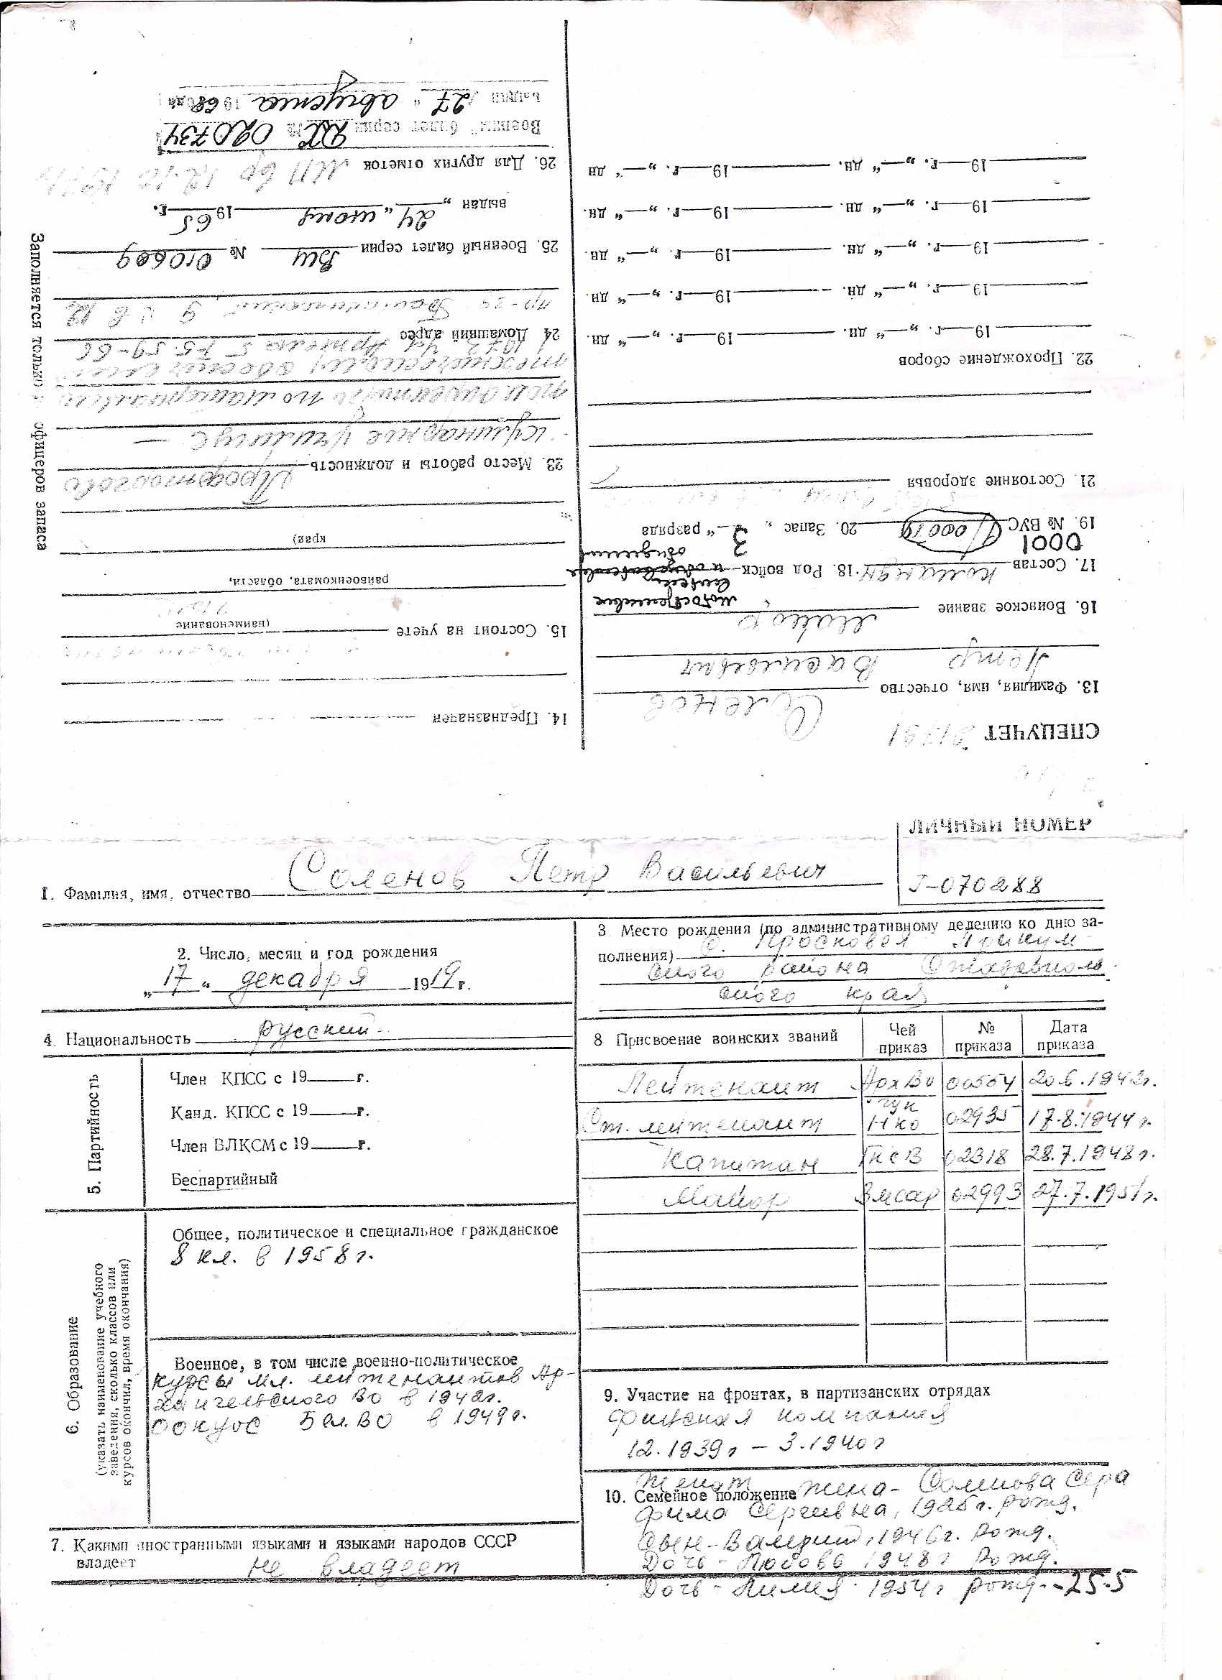 ЛИЧНЫЙ НОМЕР
I-070288
1. Фамилия, имя, отчество Соленов Петр Васильевич
2. Число, месяц и год рождения
„17“ декабря 1919 г.
3 Место рождения (по административному делению ко дню за-
полнения) с. Прасковея Прикум-
ского района Ставрополь-
ского края
4. Национальность русский
5. Партийность
Член КПСС с 19 г.
Канд. КПСС с 19 г.
Член ВЛКСМ с 19 г.
Беспартийный
6. Образование
(указать наименование учебного
заведения, сколько классов или
курсов окончил, время окончания)
Общее, политическое и специальное гражданское
8 кл. в 1958 г.
Военное, в том числе военно-политическое
курсы мл. лейтенантов Ар-
хангельского ВО в 1942г.
ООКУОС Бел.ВО в 1949г.
7. Какими иностранными языками и языками народов СССР
владеет не владеет
8 Присвоение воинских званий Чей приказ № приказа Дата приказа
Лейтенант АрхВО 00554 20.6.1942г.
Ст. лейтенант ГУК НКО 02935 17.8.1944 г.
Капитан ГКСВ 02318 28.7.1948г.
Майор 02993 27.7.1951г.
9. Участие на фронтах, в партизанских отрядах
финская компания
12.1939г – 3.1940г
10. Семейное положение Женат жена - Соленова Сера
фима Сергеевна, 1925г. рожд.
Сын-Валерий, 1946г. рожд.
Дочь - Любовь 1948 г рожд.
Дочь - Лилия 1954 г рожд. -25-5
СПЕЦУЧЕТ
13. Фамилия, имя, отчество Соленов
Петр Васильевич
16. Воинское звание майор
17. Состав командн. 18. Род войск
мотострелковые
0001
19. № ВУС 00019 20. Запас „ 3 “ разряда
21. Состояние здоровья
22. Прохождение сборов
19 г. „ “ дн. 19 г. „ “ дн
19 г. „ “ дн. 19 г. „ “ дн.
19 г. „ “ дн. 19 г. „ “ дн
19 г. „ “ дн. 19 г. „ “ дн.
19 г. „ “ дн. 19 г. „ “ дн
14. Предназначен
15. Состоит на учете
(наименование
райвоенкомата, области,
края)
23. Место работы и должность Продторгово
кулинарное училище –
24 Домашний адрес
25. Военный билет серии ВШ № 010609
выдан „24“ июня 1965 г.
26. Для других отметок
Военный билет серии ДХ № 020734
выдан „27“ августа 1968 года
Заполняется только офицеров запаса